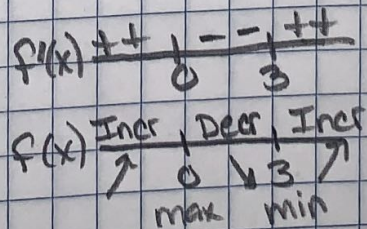 f'(x) ++ -- ++
0 3
f(x) Incr Decr Incr
0 3
max min